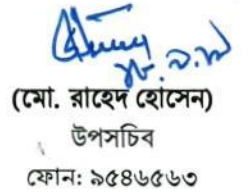 (মো. রাহেদ হোসেন)
উপসচিব
ফোন: ৯৫৪৬৫৬৩